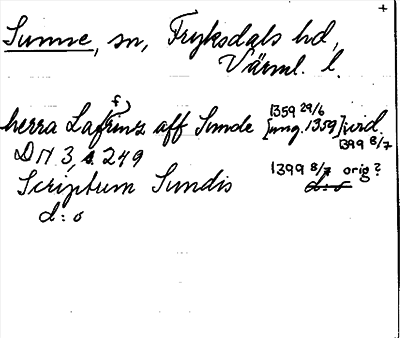 +
Sunne, sn, Fryksdals hd,
Värml. l.
herra Lafrinz aff Sunde [omg. 1359] vid.
1359 29/6
1399 8/7
DN 3, s. 249
Scriptum Sundis 1399 8/7 orig?
d:o d:o